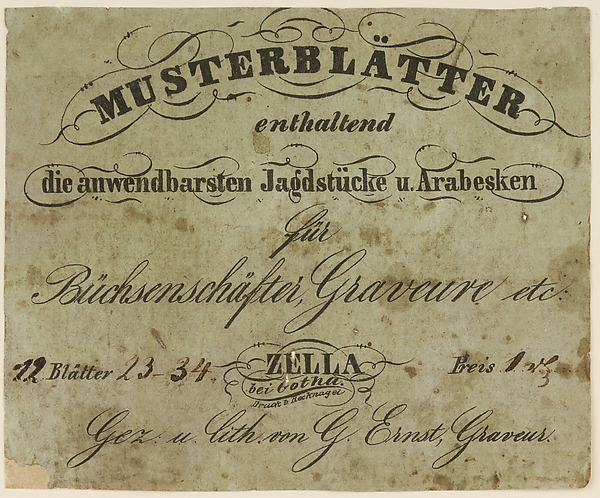 MUSTERBLÄTTER
enthaltend
die anwendbarsten Jagdstücke u. Arabesken
für
Büchsenschäfter, Graveure etc.
Blätter 23-34. ZELLA Preis 1
bei Gotha.
Druck v. Recknagel
Gez. u. lith. von G. Ernst, Graveur.